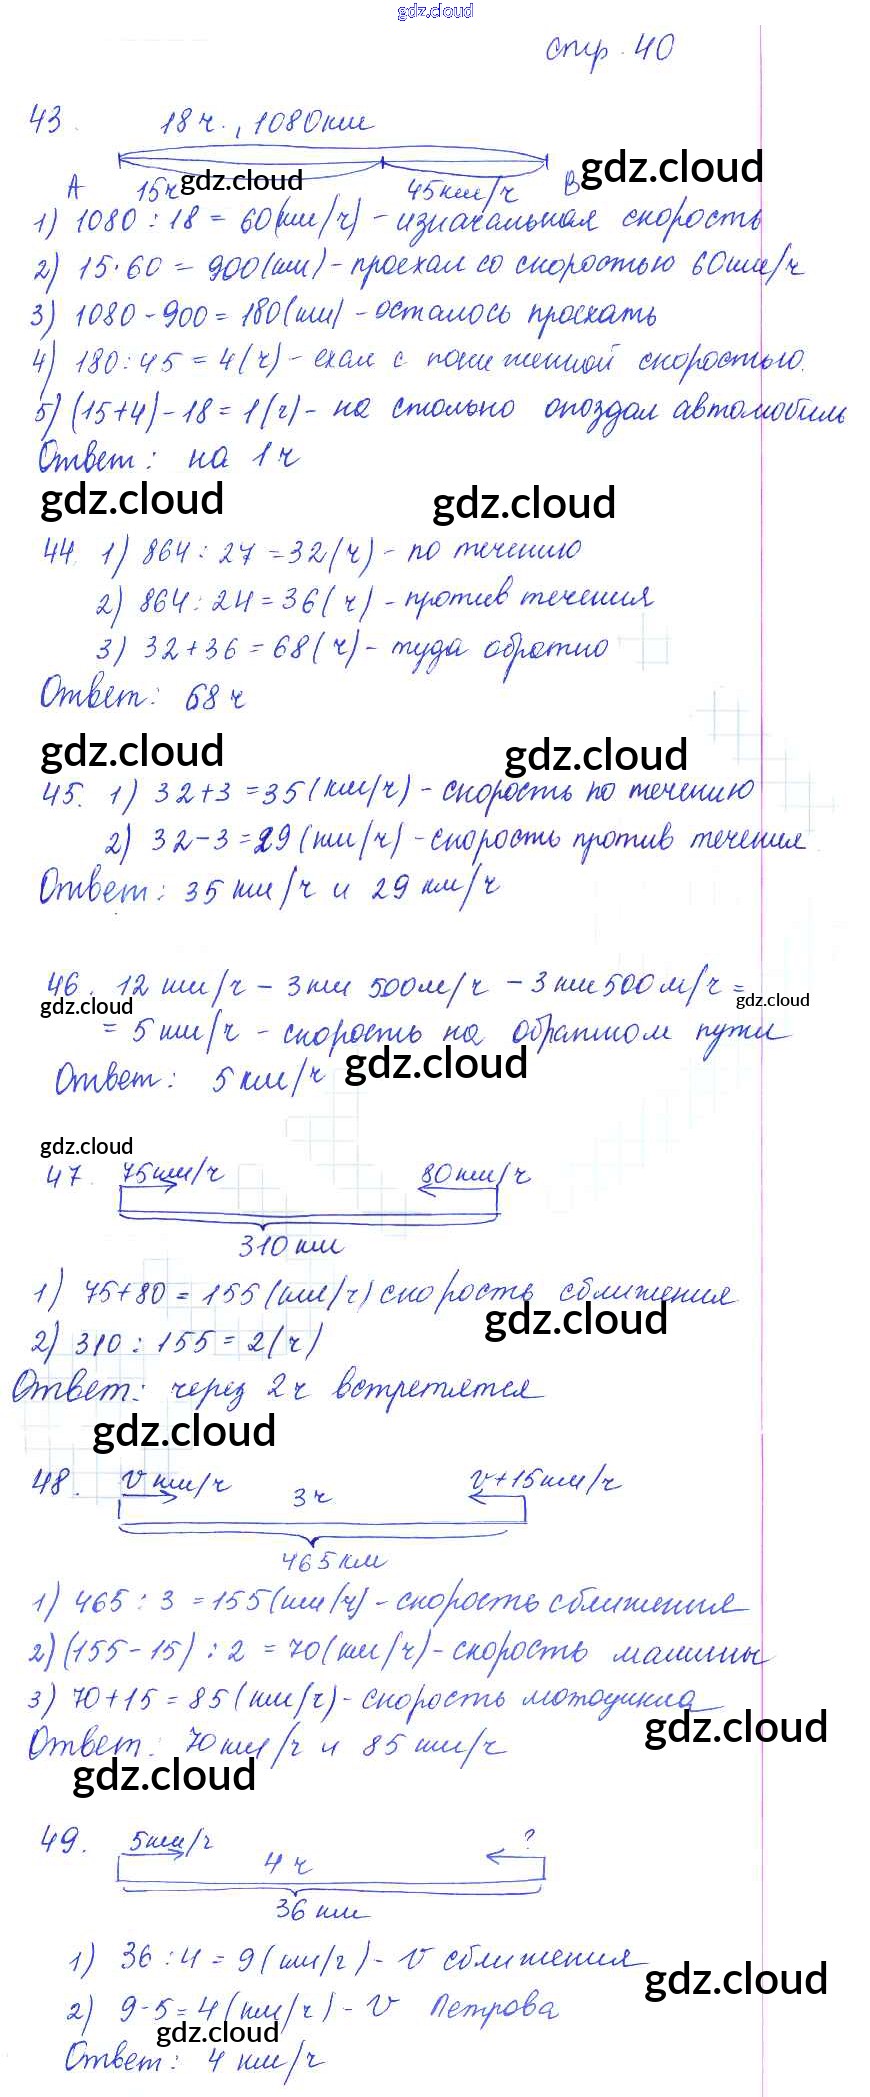 gdz.cloud
стр. 40
43. 18 ч., 1080 км
gdz.cloud
А 15ч gdz.cloud 45 км/ч В
1) 1080 : 18 = 60 (км/ч) - изначальная скорость
2) 15·60 = 900 (км) - проехал со скоростью 60 км/ч
3) 1080 - 900 = 180 (км) - осталось проехать
4) 180 : 45 = 4 (ч) - ехал с пониженной скоростью.
5) (15+4) - 18 = 1 (ч) - на столько опоздал автомобиль
Ответ: на 1 ч
gdz.cloud gdz.cloud
44. 1) 864 : 27 = 32 (ч) - по течению
2) 864 : 24 = 36 (ч) - против течения
3) 32 + 36 = 68 (ч) - туда обратно
Ответ: 68 ч
gdz.cloud gdz.cloud
45. 1) 32 + 3 = 35 (км/ч) - скорость по течению
2) 32 - 3 = 29 (км/ч) - скорость против течения
Ответ: 35 км/ч и 29 км/ч
46. 12 км/ч - 3 км 500 м/ч - 3 км 500 м/ч =
gdz.cloud gdz.cloud
= 5 км/ч - скорость на обратном пути
Ответ: 5 км/ч gdz.cloud
gdz.cloud
47. 75 км/ч 80 км/ч
310 км
1) 75 + 80 = 155 (км/ч) скорость сближения
gdz.cloud
2) 310 : 155 = 2 (ч)
Ответ: через 2 ч встретятся
gdz.cloud
48. v км/ч 3 ч v + 15 км/ч
465 км
1) 465 : 3 = 155 (км/ч) - скорость сближения
2) (155 - 15) : 2 = 70 (км/ч) - скорость машины
3) 70 + 15 = 85 (км/ч) - скорость мотоцикла
gdz.cloud
Ответ: 70 км/ч и 85 км/ч
gdz.cloud
49. 5 км/ч 4 ч ?
36 км
1) 36 : 4 = 9 (км/ч) - v сближения
gdz.cloud
2) 9 - 5 = 4 (км/ч) - v Петрова
gdz.cloud
Ответ: 4 км/ч